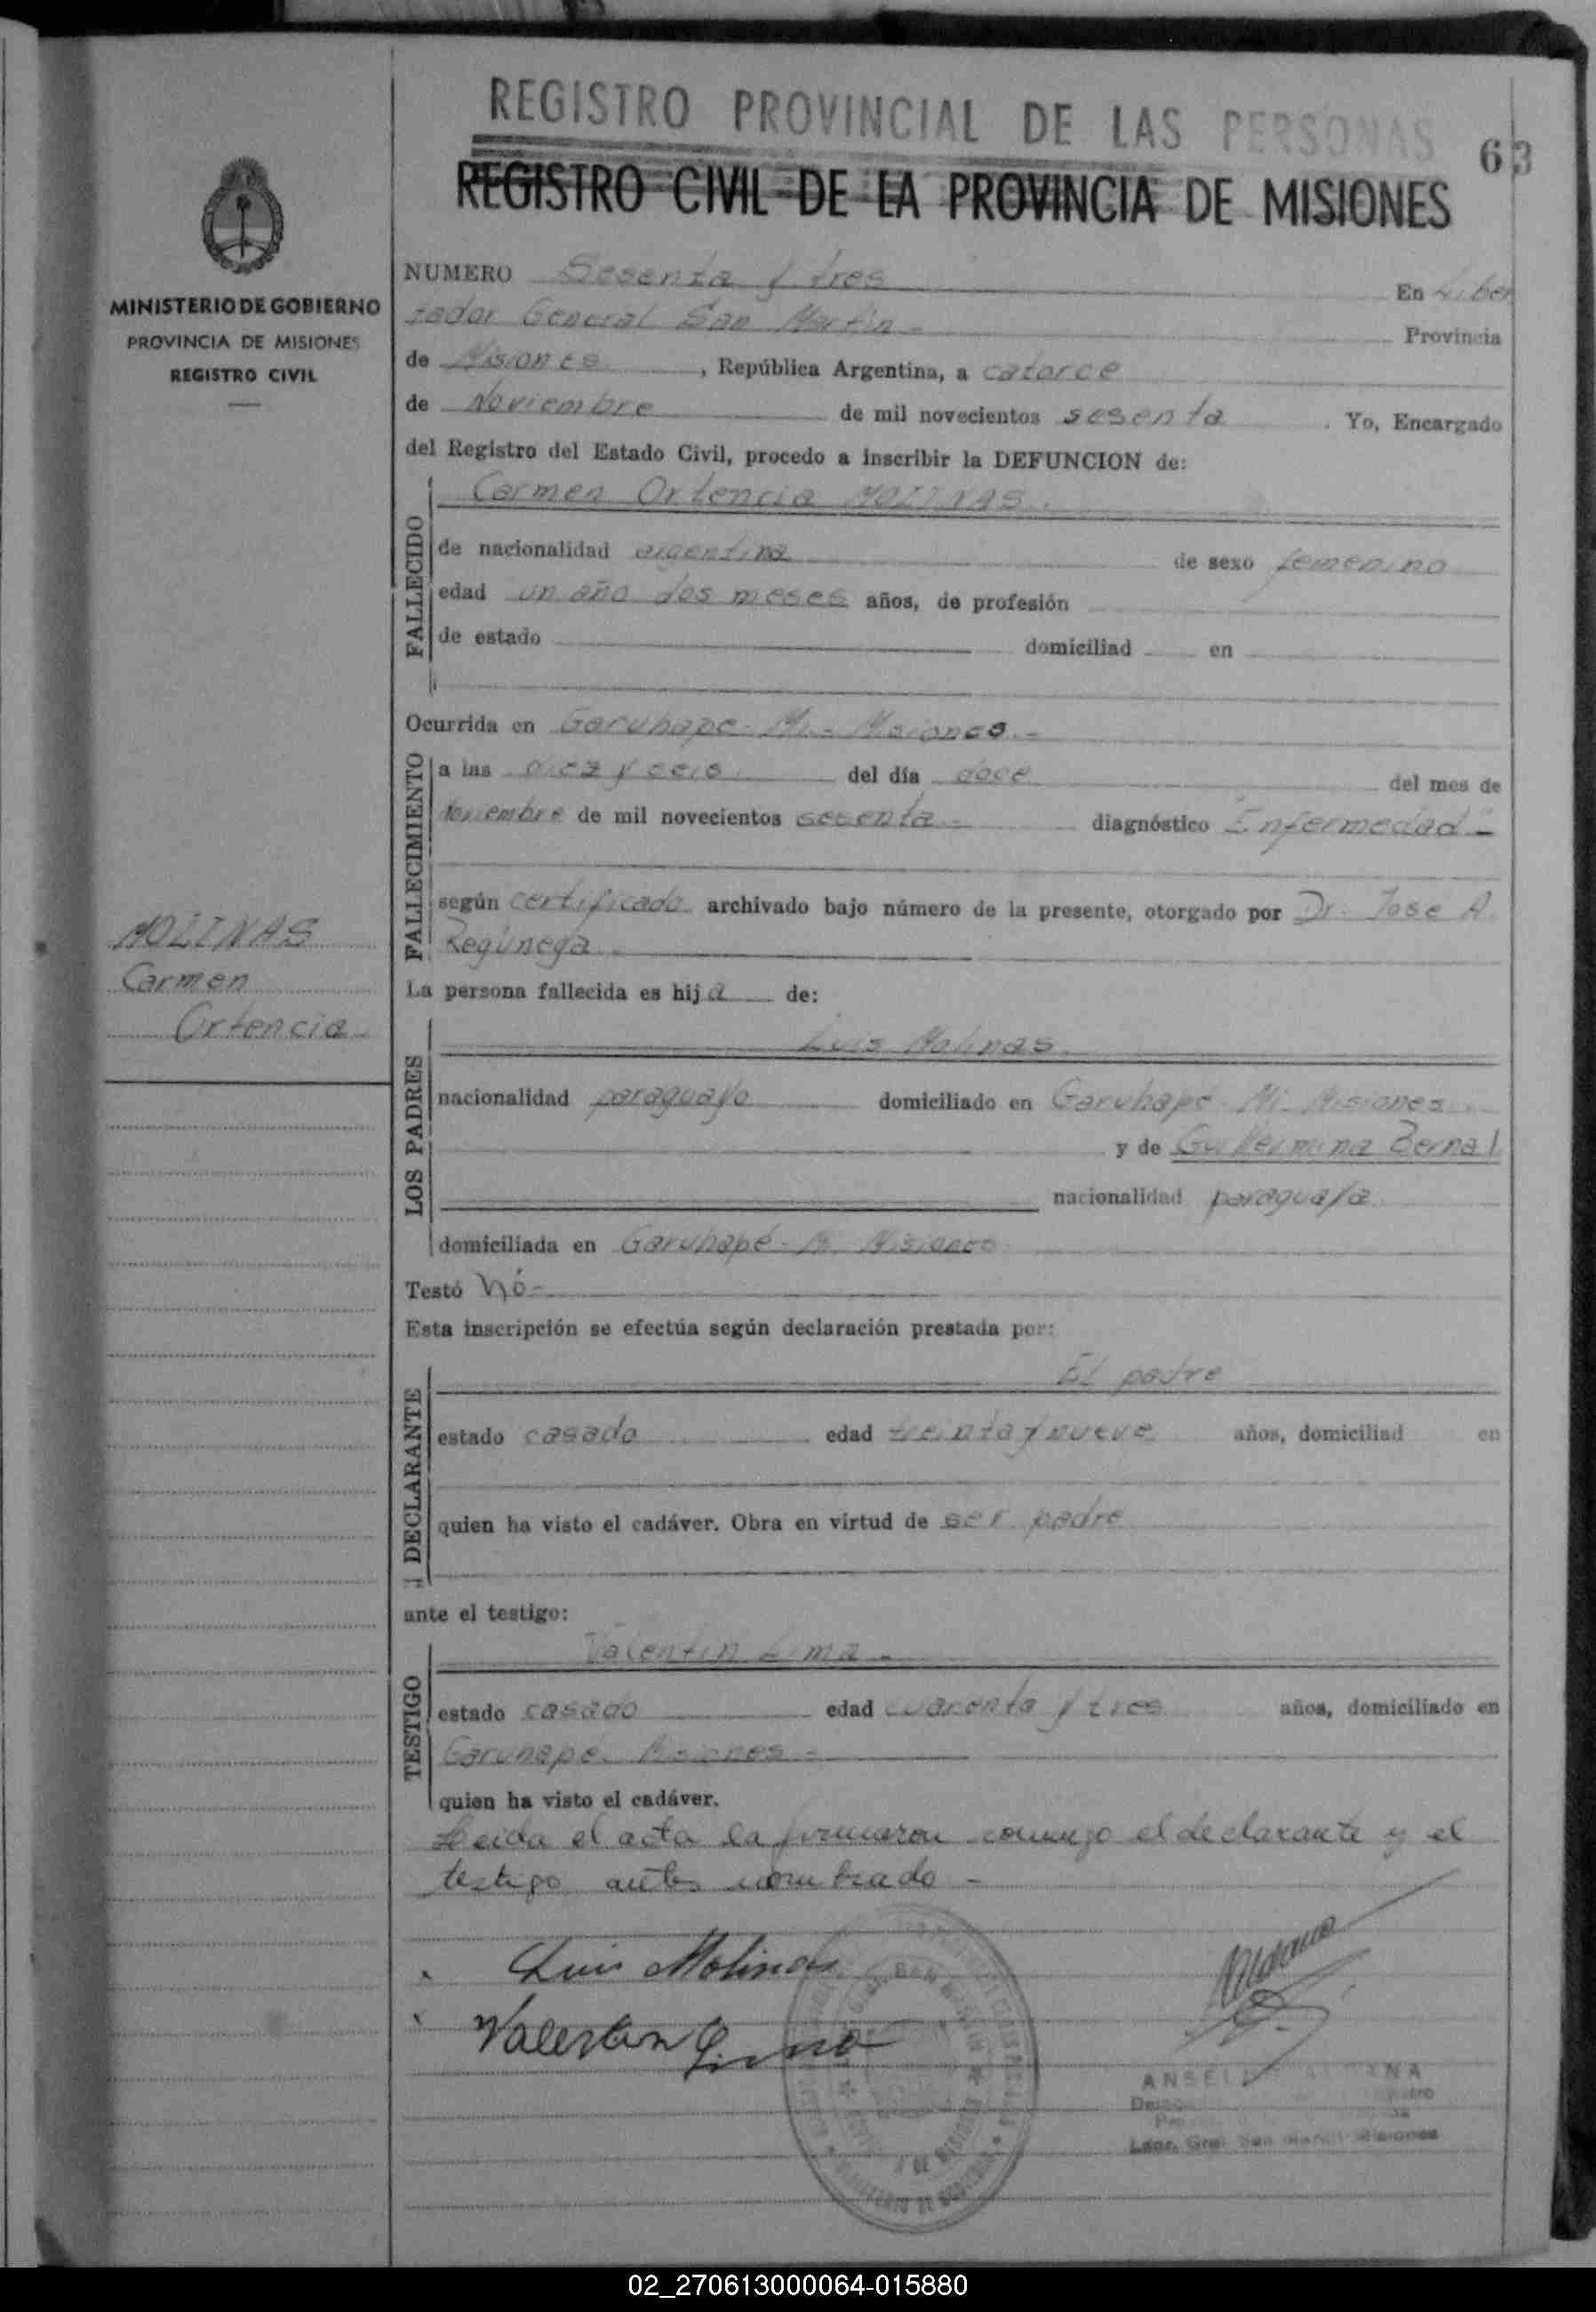 REGISTRO PROVINCIAL DE LAS PERSONAS
63
REGISTRO CIVIL DE LA PROVINCIA DE MISIONES
MINISTERIO DE GOBIERNO
PROVINCIA DE MISIONES
REGISTRO CIVIL
NUMERO Sesenta y tres En Liber
tador General San Martín - Provincia
de Misiones , República Argentina, a catorce
de Noviembre de mil novecientos sesenta . Yo, Encargado
del Registro del Estado Civil, procedo a inscribir la DEFUNCION de:
Carmen Ortencia MOLINAS.
FALLECIDO
de nacionalidad argentina de sexo femenino
edad un año dos meses años, de profesión
de estado domiciliad en
Ocurrida en Garuhape - Mi - Misiones. -
FALLECIMIENTO
a las diez y seis del día doce del mes de
Noviembre de mil novecientos sesenta - diagnóstico "Enfermedad" -
según certificado archivado bajo número de la presente, otorgado por Dr. Jose A.
Regúnega
MOLINAS
Carmen
Ortencia
La persona fallecida es hij a de:
LOS PADRES
Luis Molinas
nacionalidad paraguayo domiciliado en Garuhapé - Mi. Misiones
y de Guillermina Bernal
nacionalidad paraguaya
domiciliada en Garuhapé - Mi Misiones
Testó Nó -
Esta inscripción se efectúa según declaración prestada por:
DECLARANTE
El padre
estado casado edad treinta y nueve años, domiciliad en
quien ha visto el cadáver. Obra en virtud de ser padre
ante el testigo:
TESTIGO
Valentin Lima -
estado casado edad cuarenta y tres años, domiciliado en
Garuhapé Misiones -
quien ha visto el cadáver.
Leida el acta la firmaron conmigo el declarante y el
testigo antes nombrado -
Luis Molinas
Valentin Lima
ANSEL
Ldor. Gral San Martin Misiones
02_270613000064-015880